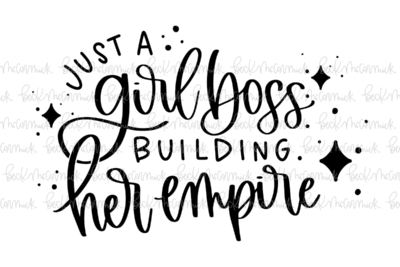 JUST A
girl boss
BUILDING
her empire